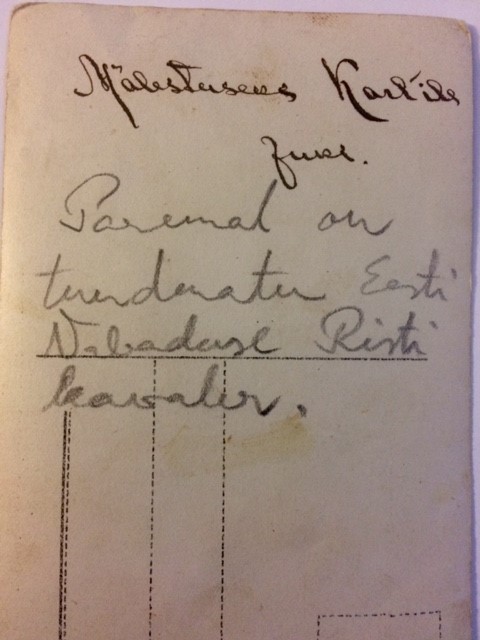 Mälestuseks Karl'ile
Paremal on
tundmatu Eesti
Vabaduse Risti
kavaler.